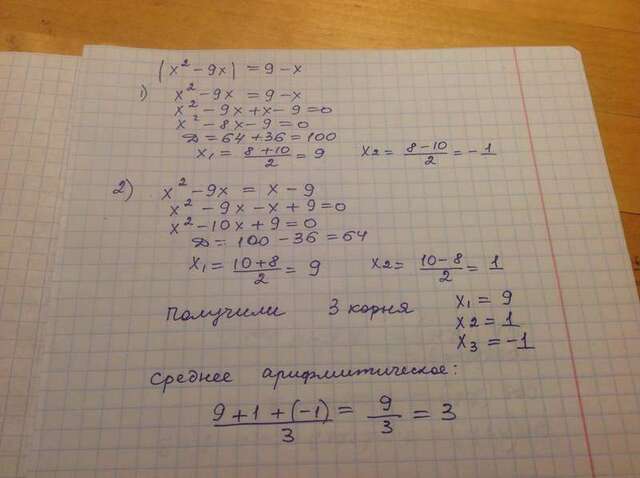 |x² - 9x| = 9 - x
1) x² - 9x = 9 - x
x² - 9x + x - 9 = 0
x² - 8x - 9 = 0
D = 64 + 36 = 100
x₁ = (8 + 10)/2 = 9    x₂ = (8 - 10)/2 = -1
2) x² - 9x = x - 9
x² - 9x - x + 9 = 0
x² - 10x + 9 = 0
D = 100 - 36 = 64
x₁ = (10 + 8)/2 = 9    x₂ = (10 - 8)/2 = 1
Получили 3 корня    x₁ = 9
x₂ = 1
x₃ = -1
Среднее арифмитическое:
(9 + 1 + (-1))/3 = 9/3 = 3